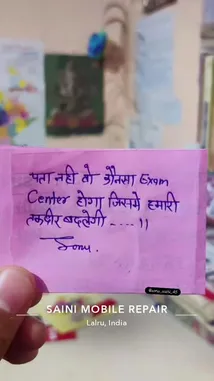 पता नही वो कौनसा Exam
Center होगा जिसमे हमारी
तकदीर बदलेगी ----!!
Sonu.
SAINI MOBILE REPAIR
Lalru, India